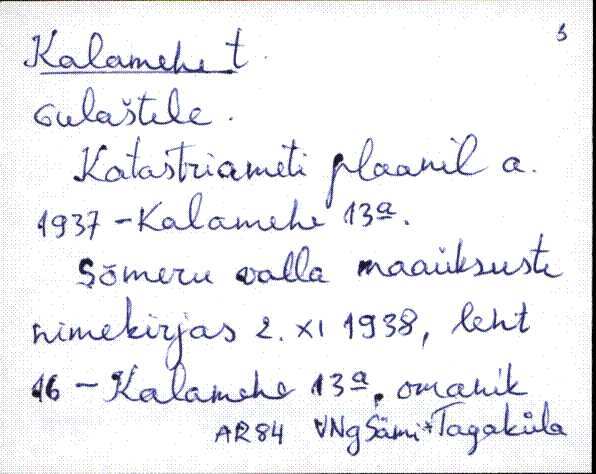 3
Kalamehe t.
Gulaštele.
Katastriameti plaanil a.
1937 - Kalamehe 13a.
Sõmeru valla maaüksuste
nimekirjas 2. XI 1938, leht
16 - Kalamehe 13a, omanik
AR 84 VNg Sämi-Tagaküla